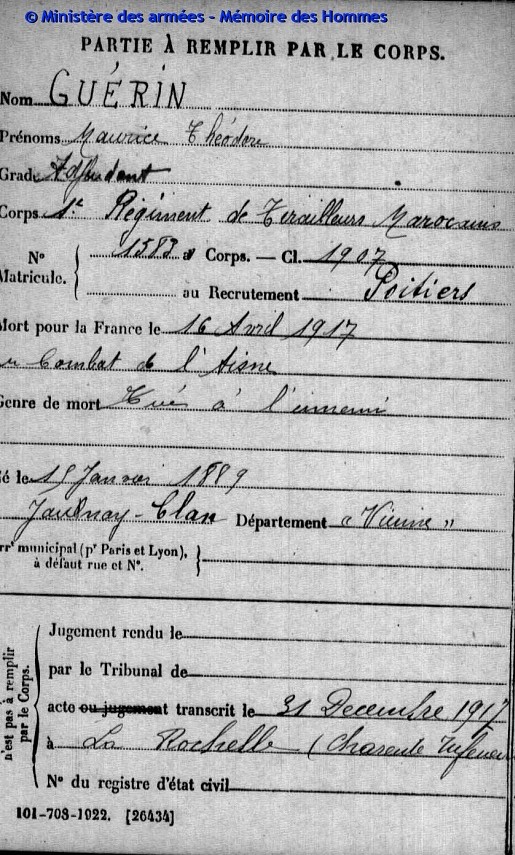 © Ministère des armées - Mémoire des Hommes
PARTIE À REMPLIR PAR LE CORPS.
Nom GUÉRIN
Prénoms Maurice Théodore
Grade Adjudant
Corps 1er Régiment de Tirailleurs Marocains
N° Matricule. { 1583 au Corps. — Cl. 1907
au Recrutement Poitiers
Mort pour la France le 16 Avril 1917
Combat de l'Aisne
Genre de mort Tué à l'ennemi
Né le 15 Janvier 1889
Jaulnay-Clan Département "Vienne"
Arrt municipal (pr Paris et Lyon), à défaut rue et N°. }
Jugement rendu le
par le Tribunal de
acte ou jugement transcrit le 31 Decembre 1917
à La Rochelle (Charente Inférieure
N° du registre d'état civil
n'est pas à remplir par le Corps.
101-708-1922. [26434]